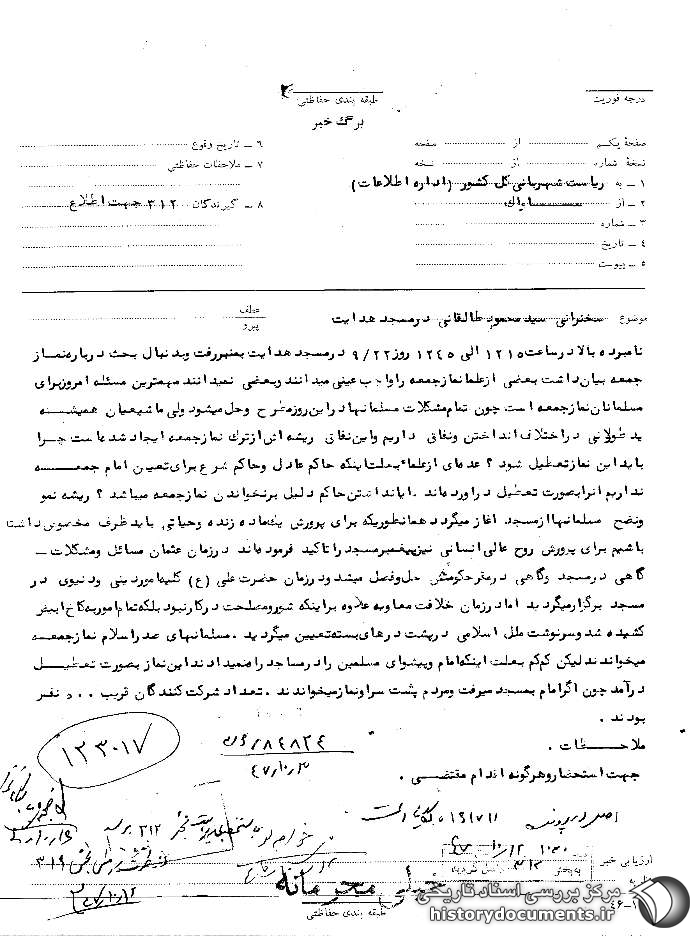 درجه فوریت
طبقه بندی حفاظتی
برگ خبر
صفحهٔ یکم از صفحه
نسخهٔ شماره از نسخه
۱ ـ به ریاست شهربانی کل کشور (اداره اطلاعات)
۲ ـ از ساواک
۳ ـ شماره
۴ ـ تاریخ
۵ ـ پیوست
۶ ـ تاریخ وقوع
۷ ـ ملاحظات حفاظتی
۸ ـ گیرندگان ۳۱۲ جهت اطلاع
موضوع سخنرانی سید محمود طالقانی در مسجد هدایت
عطف
پیرو
نامبرده بالا در ساعت ۱۲۱۵ الی ۱۲۴۵ روز ۹/۲۲ در مسجد هدایت بمنبر رفت و بدنبال بحث درباره نماز
جمعه بیان داشت بعضی از علما نماز جمعه را واجب عینی میدانند و بعضی نمیدانند مهمترین مسئله امروز برای
مسلمانان نماز جمعه است چون تمام مشکلات مسلمانها در این روز مطرح و حل میشود ولی ما شیعیان همیشه
ید طولانی در اختلاف انداختن و نفاق داریم و این نفاق ریشه اش از ترک نماز جمعه ایجاد شده است چرا
باید این نماز تعطیل شود ؟ عده ای از علما بعلت اینکه حاکم عادل و حاکم شرع برای تعیین امام جمعه
نداریم آنرا بصورت تعطیل در آورده اند . آیا نداشتن حاکم دلیل بر نخواندن نماز جمعه میباشد ؟ ریشه نمو
ونضج مسلمانها از مسجد آغاز میگردد همانطوریکه برای پرورش یکماده زنده و حیاتی باید ظرف مخصوص داشت
باشیم برای پرورش روح عالی انسانی نیز پیغمبر مسجد را تاکید فرموده اند در زمان عثمان مسائل و مشکلات ـ
گاهی در مسجد و گاهی در مقر حکومتش حل و فصل میشد و در زمان حضرت علی (ع) کلیه امور دینی و دنیوی در
مسجد برگزار میگردید اما در زمان خلافت معاویه علاوه بر اینکه شور و مصلحت در کار نبود بلکه تمام امور به کاخ ابیض
کشیده شد و سرنوشت ملل اسلامی در پشت درهای بسته تعیین میگردید . مسلمانهای صدر اسلام نماز جمعه
میخواندند لیکن کم کم بعلت اینکه امام و پیشوای مسلمین را در مساجد راه نمیدادند این نماز بصورت تعطیل
در آمد چون اگر امام بمسجد میرفت و مردم پشت سر او نماز میخواندند . تعداد شرکت کنندگان قریب ۵۰۰ نفر
بودند .
ملاحظات .
جهت استحضار و هرگونه اقدام مقتضی .
۱۳۳۰۱۷
۴۷/۱۰/۳
اصل در پرونده
ارزیابی خبر
خیلی محرمانه
طبقه بندی حفاظتی
مرکز بررسی اسناد تاریخی
historydocuments.ir